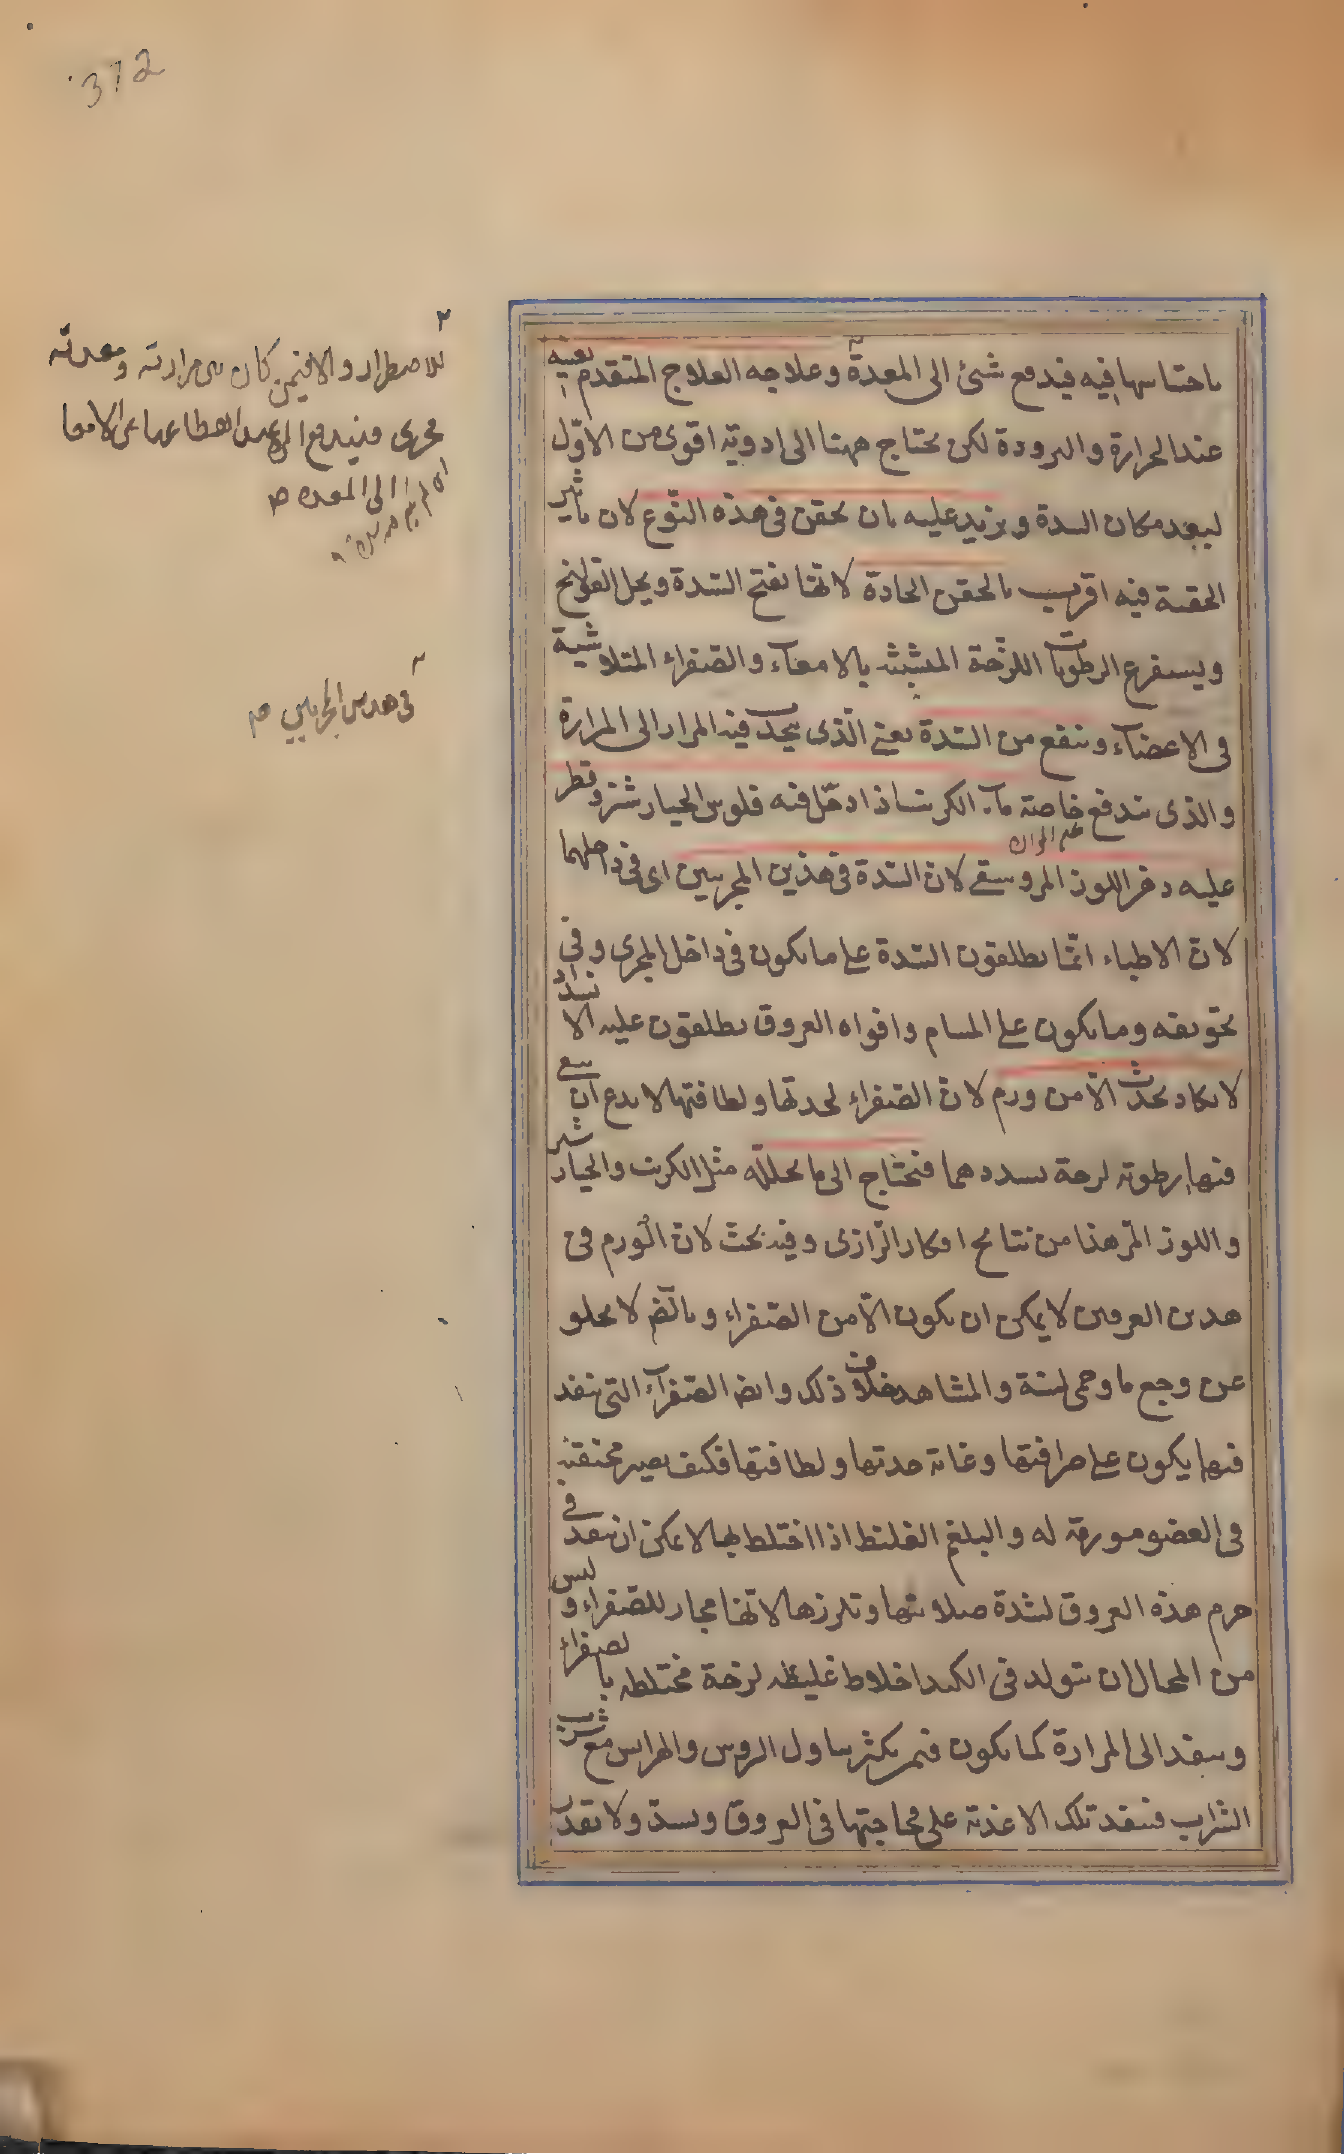 372
باحتباسها فيه فيدفع شئ الى المعدة وعلاجه العلاج المتقدم بعينه
عند الحرارة والبرودة لكن يحتاج ههنا الى ادوية اقوى من الاوّل
لبعد مكان السدة ويزيد عليه بان يحقن فى هذه النّوع لان تأثير
الحقنة فيه اقرب بالحقن الحادة لانّها تفتح السّدة ويحل القولنج
ويستفرغ الرطوبات اللزجة المتشبثة بالامعاء والصّفراء المتلاشية
فى الاعضاء وينفع من السّدة يعنى الّذى يجذب فيه المرار الى المرارة
والذى يندفع خاصة ماء الكرفس اذا دخل فيه فلوس الخيار شنبر وقطر
عليه دهن اللوز المر وسقى لان السّدة فى هذين المجريين اى فى داخلهما
لانّ الاطباء انّما يطلقون السّدة على ما يكون فى داخل المجرى وفى
تجويفه وما يكون على المسام وافواه العروق يطلقون عليه الانسداد
لا يكاد يحدث الّا من ورم لانّ الصّفراء لحدتها ولطافتها لا يدع ان يبقى
فيها رطوبة لزجة يسددهما فيحتاج الى ما يحلله مثل الكرنب والخيار شنبر
واللوز المرّ هذا من نتائج افكار الرّازى وفيه بحث لانّ الورم فى
هذين العرقين لا يمكن ان يكون الّا من الصّفراء وبالّضم لا يخلو
عن وجع ما وحمى لينة والمشاهد خلاف ذلك وايض الصّفراء التى ينفذ
فيها يكون على صرافتها وغاية حدتها ولطافتها فكيف يصير محتقنة
فى العضو مورمة له والبلغم الغليظ اذا اختلط بها لا يمكن ان ينفذ فى
جرم هذه العروق لشدة صلابتها وتلززها لانّها مجار للصّفراء وليس
من المحال ان يتولد فى الكبد اخلاط غليظه لزجة مختلطه بالصفراء
وينفذ الى المرارة كما يكون فيمن يكثر تناول الروس والهرايس مع شرب
الشراب فينفذ تلك الاغذية على فجاجتها فى العروق ويسدّ ولا يقدر
٢
للاضطرار والافيمن كان بين مرارته ومعدته
مجرى فيندفع
الى المعدة صح
فى هذين المجريين صح